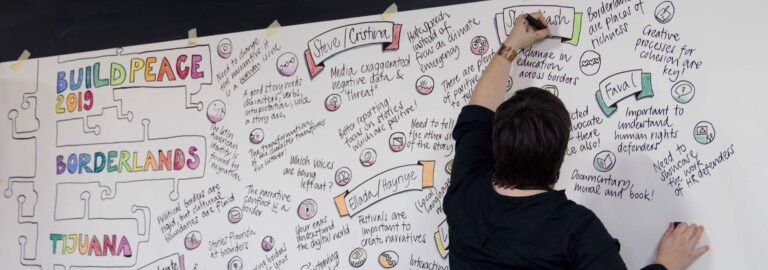 BUILDPEACE
2019
BORDERLANDS
TIJUANA
Need to change
the narrative
is a
A good story needs
characters, verbs,
interpretation,
a story arc,
identity is
formed by
migration
The transformation
of the character transforms
Political borders are
rigid, but cultural
boundaries are fluid
The narrative
conflict is a
border
Stories flourish
at borders
Steve/Cristina
Media exaggerated
negative data &
threat
Better reporting
focus on stories
which are positive!
Which voices
are being
left out?
Ellada/Haynrye
Festivals are
important to
create narratives
Your ears
understand
the digital
world
Hate speech
instead of
focus on climate
emergency
There are plenty
of positive
to
Need to tell
the other
Interacting
change in
education
across borders
Borderlands
are places of
richness
Creative
processes for
cohesion are
key!
Fava
Important to
understand
human rights
defenders
advocate
there
also!
Documentary,
mural and book!
Need to
showcase
the work
of HR defenders